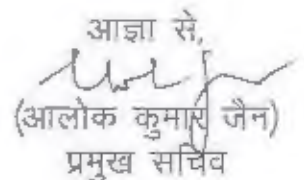 आज्ञा से,
(आलोक कुमार जैन)
प्रमुख सचिव